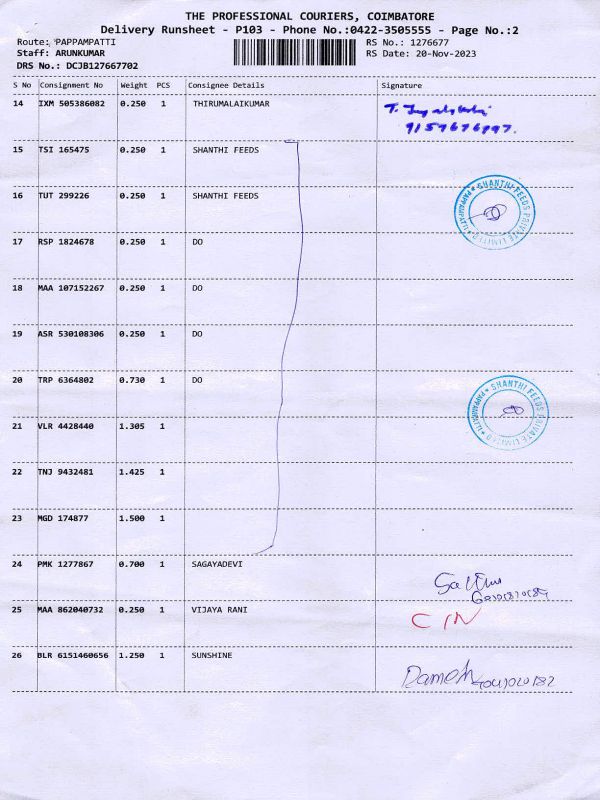 THE PROFESSIONAL COURIERS, COIMBATORE
Delivery Runsheet - P103 - Phone No.:0422-3505555 - Page No.:2
Route: PAPPAMPATTI RS No.: 1276677
Staff: ARUNKUMAR RS Date: 20-Nov-2023
DRS No.: DCJB127667702
S No Consignment No Weight PCS Consignee Details Signature
14 IXM 505386082 0.250 1 THIRUMALAIKUMAR
15 TSI 165475 0.250 1 SHANTHI FEEDS
16 TUT 299226 0.250 1 SHANTHI FEEDS
SHANTHI FEEDS PRIVATE LIMITED ★ PAPPAMPATTI ★
17 RSP 1824678 0.250 1 DO
18 MAA 107152267 0.250 1 DO
19 ASR 530108306 0.250 1 DO
20 TRP 6364802 0.730 1 DO
SHANTHI FEEDS PRIVATE LIMITED ★ PAPPAMPATTI ★
21 VLR 4428440 1.305 1
22 TNJ 9432481 1.425 1
23 MGD 174877 1.500 1
24 PMK 1277867 0.700 1 SAGAYADEVI
25 MAA 862040732 0.250 1 VIJAYA RANI C/N
26 BLR 6151460656 1.250 1 SUNSHINE